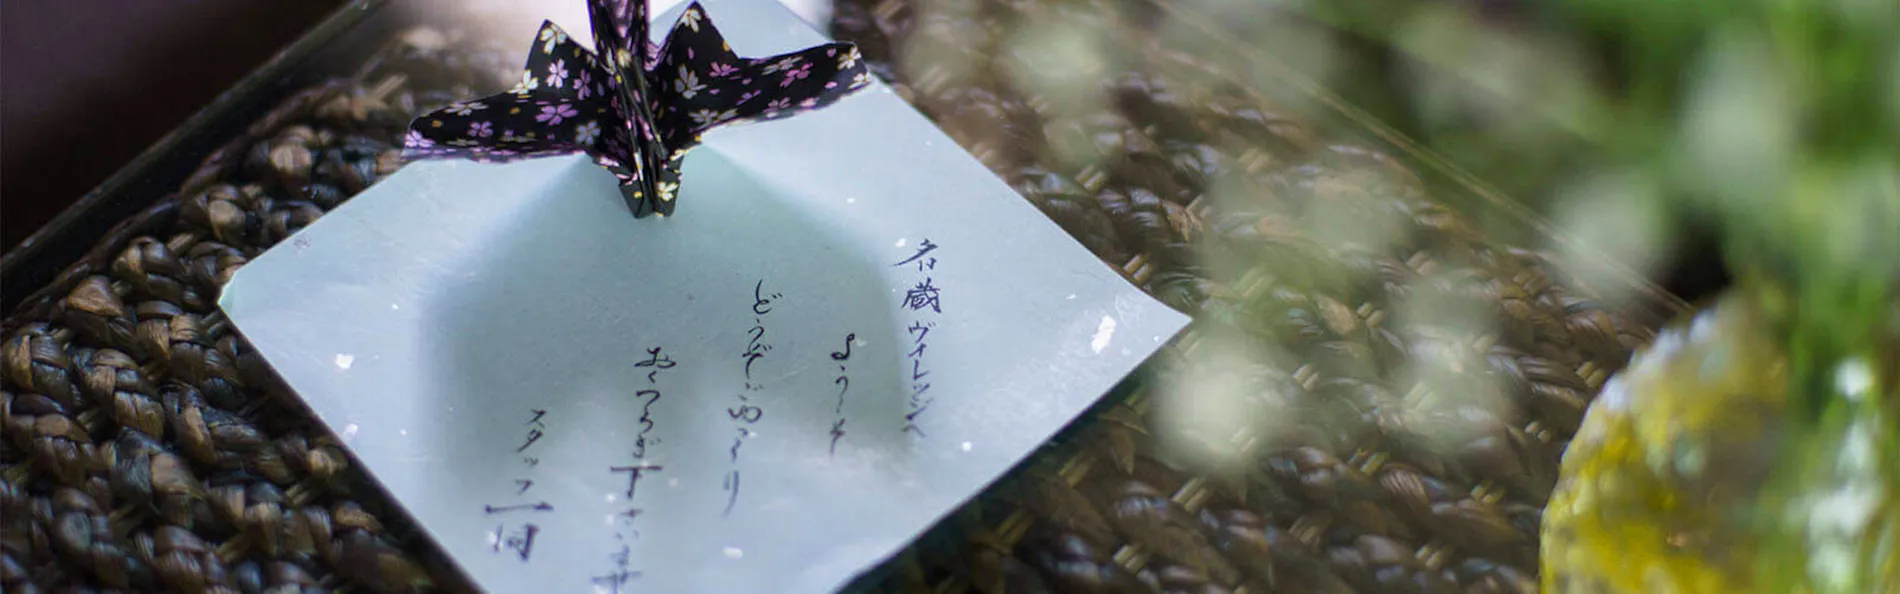 名蔵ヴィレッジへ
ようこそ
どうぞごゆっくり
おくつろぎ下さいませ
スタッフ一同